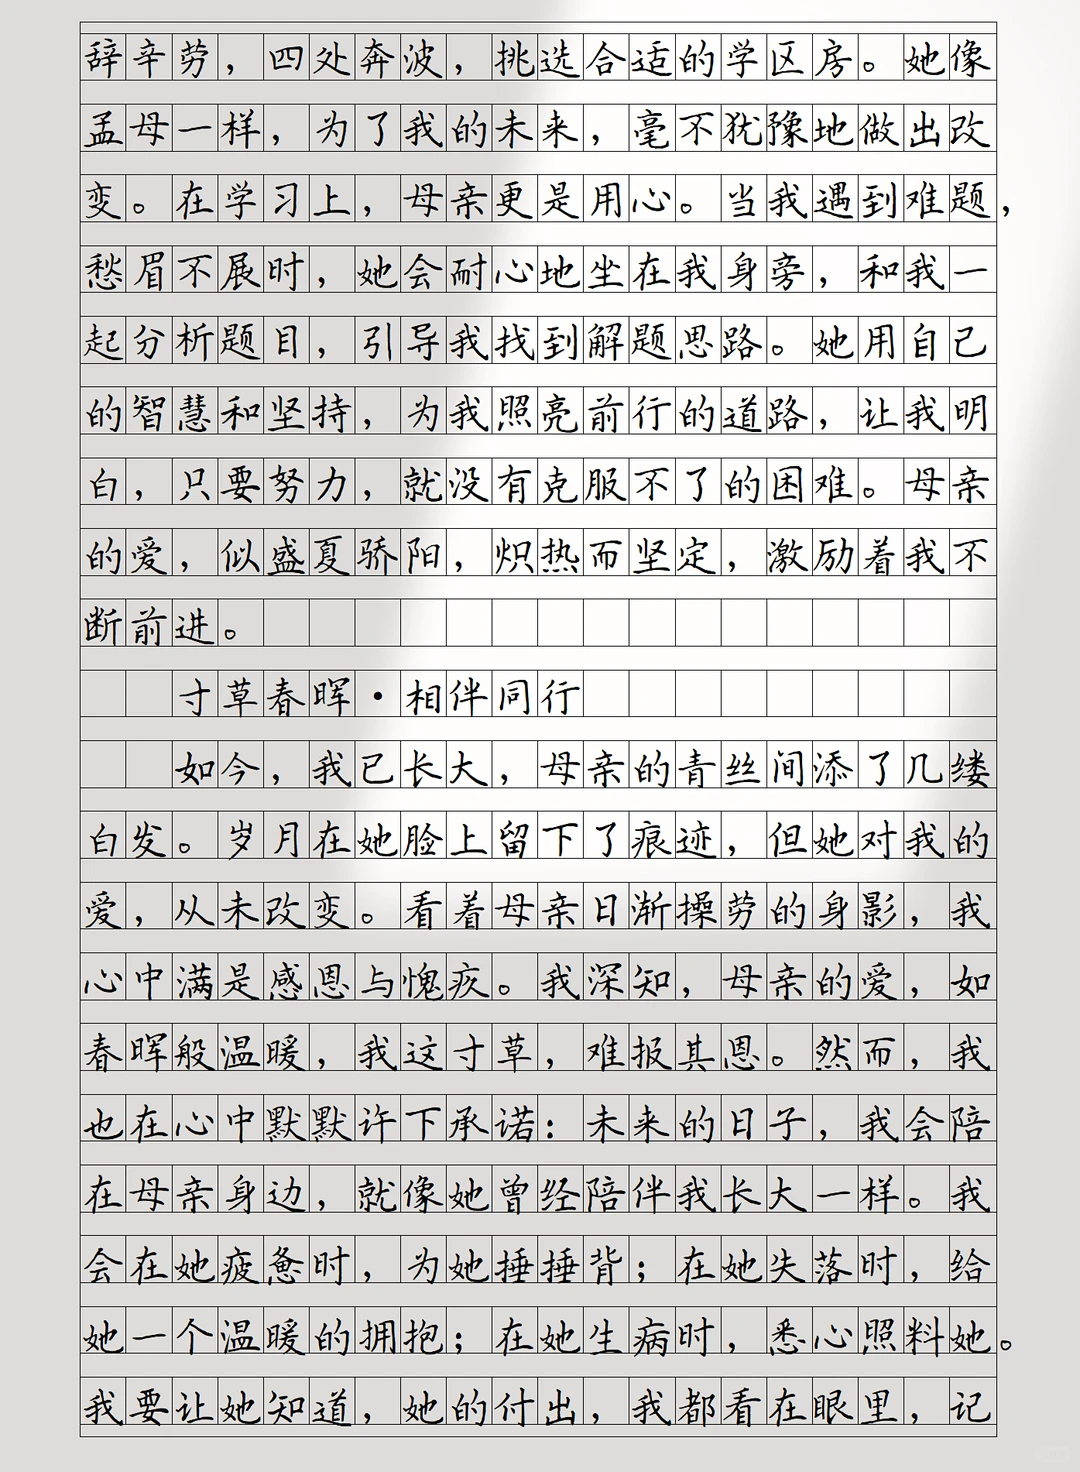 辞辛劳，四处奔波，挑选合适的学区房。她像
孟母一样，为了我的未来，毫不犹豫地做出改
变。在学习上，母亲更是用心。当我遇到难题，
愁眉不展时，她会耐心地坐在我身旁，和我一
起分析题目，引导我找到解题思路。她用自己
的智慧和坚持，为我照亮前行的道路，让我明
白，只要努力，就没有克服不了的困难。母亲
的爱，似盛夏骄阳，炽热而坚定，激励着我不
断前进。
寸草春晖·相伴同行
如今，我已长大，母亲的青丝间添了几缕
白发。岁月在她脸上留下了痕迹，但她对我的
爱，从未改变。看着母亲日渐操劳的身影，我
心中满是感恩与愧疚。我深知，母亲的爱，如
春晖般温暖，我这寸草，难报其恩。然而，我
也在心中默默许下承诺：未来的日子，我会陪
在母亲身边，就像她曾经陪伴我长大一样。我
会在她疲惫时，为她捶捶背；在她失落时，给
她一个温暖的拥抱；在她生病时，悉心照料她。
我要让她知道，她的付出，我都看在眼里，记